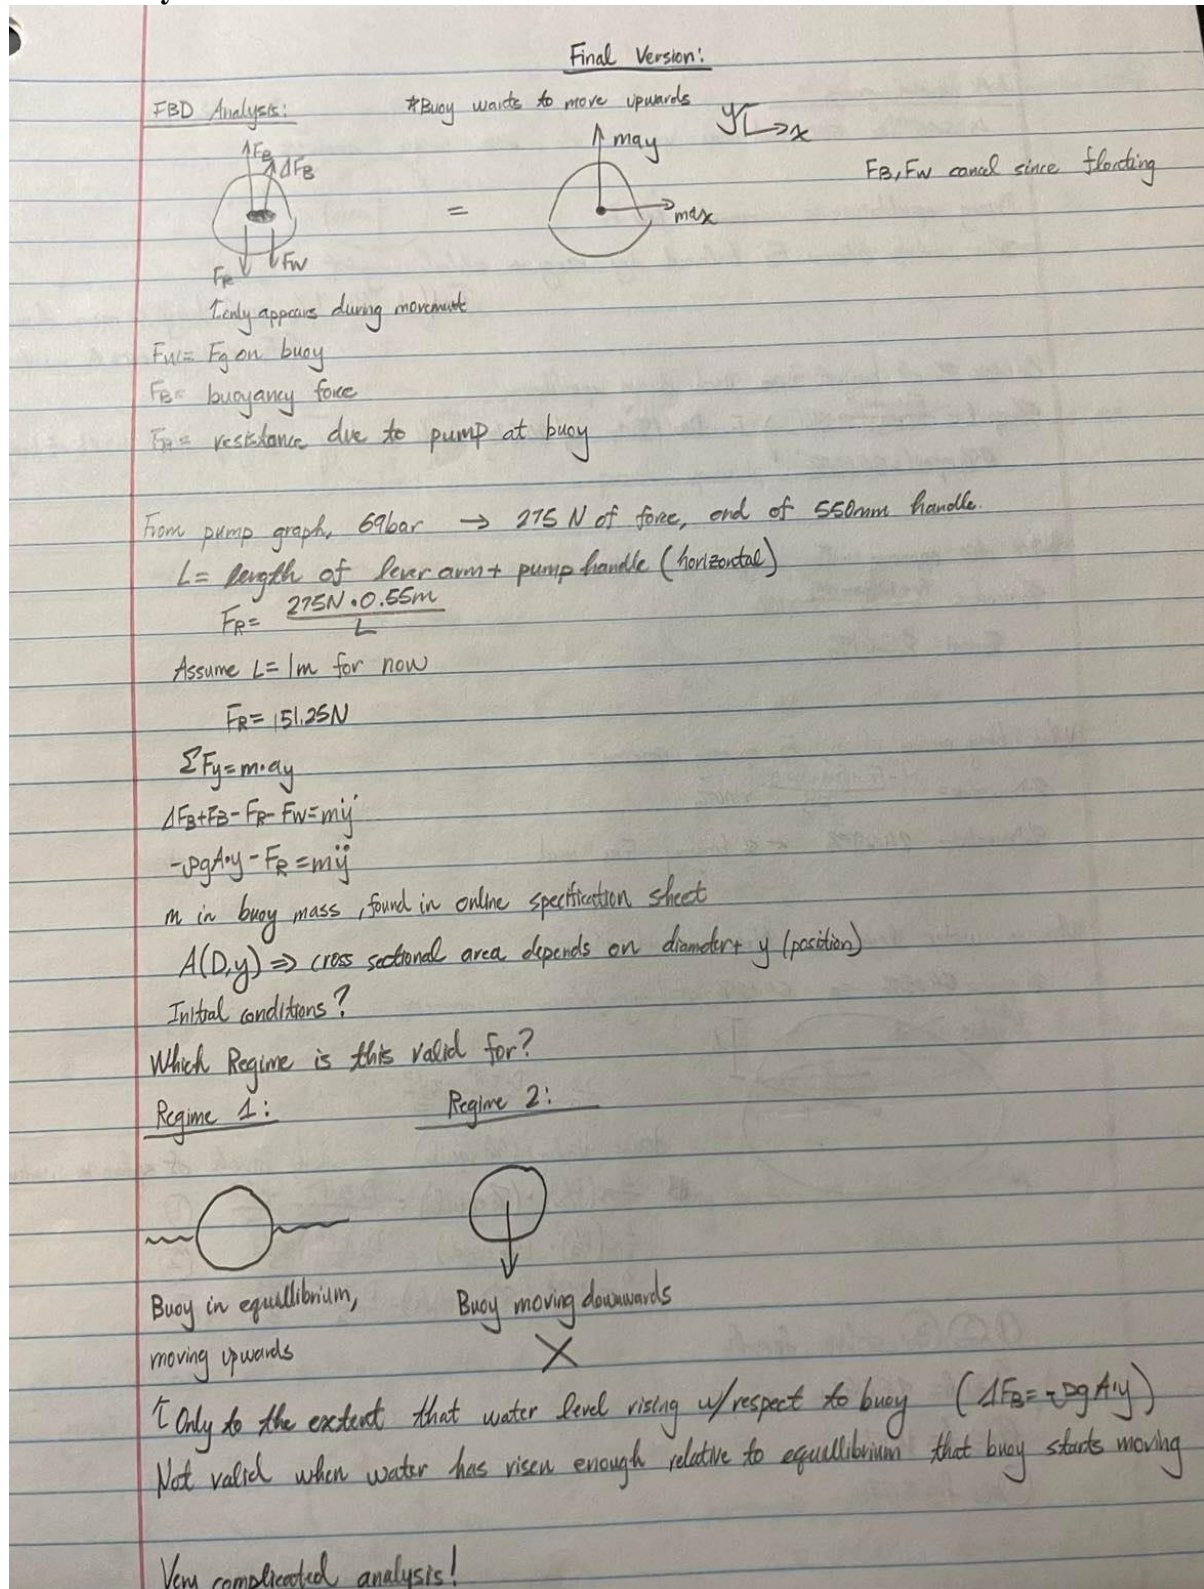 Final Version:
FBD Analysis:
*Buoy wants to move upwards
y
x
FB
ΔFB
may
FB, FW cancel since floating
=
max
FR
FW
↑only appears during movement
FW= Fg on buoy
FB= buoyancy force
FR= resistance due to pump at buoy
From pump graph, 69bar → 275 N of force, end of 550mm handle.
L= length of lever arm + pump handle (horizontal)
FR= 275N•0.55m / L
Assume L= 1m for now
FR= 151.25N
ΣFy=m•ay
ΔFB+FB-FR-FW=mÿ
-ρgA•y-FR=mÿ
m in buoy mass, found in online specification sheet
A(D,y) => cross sectional area depends on diameter + y (position)
Initial conditions?
Which Regime is this valid for?
Regime 1:
Regime 2:
Buoy in equillibrium,
moving upwards
Buoy moving downwards
X
↑ Only to the extent that water level rising w/respect to buoy (ΔFB=-ρgA•y)
Not valid when water has risen enough relative to equillibrium that buoy starts moving
Very complicated analysis!